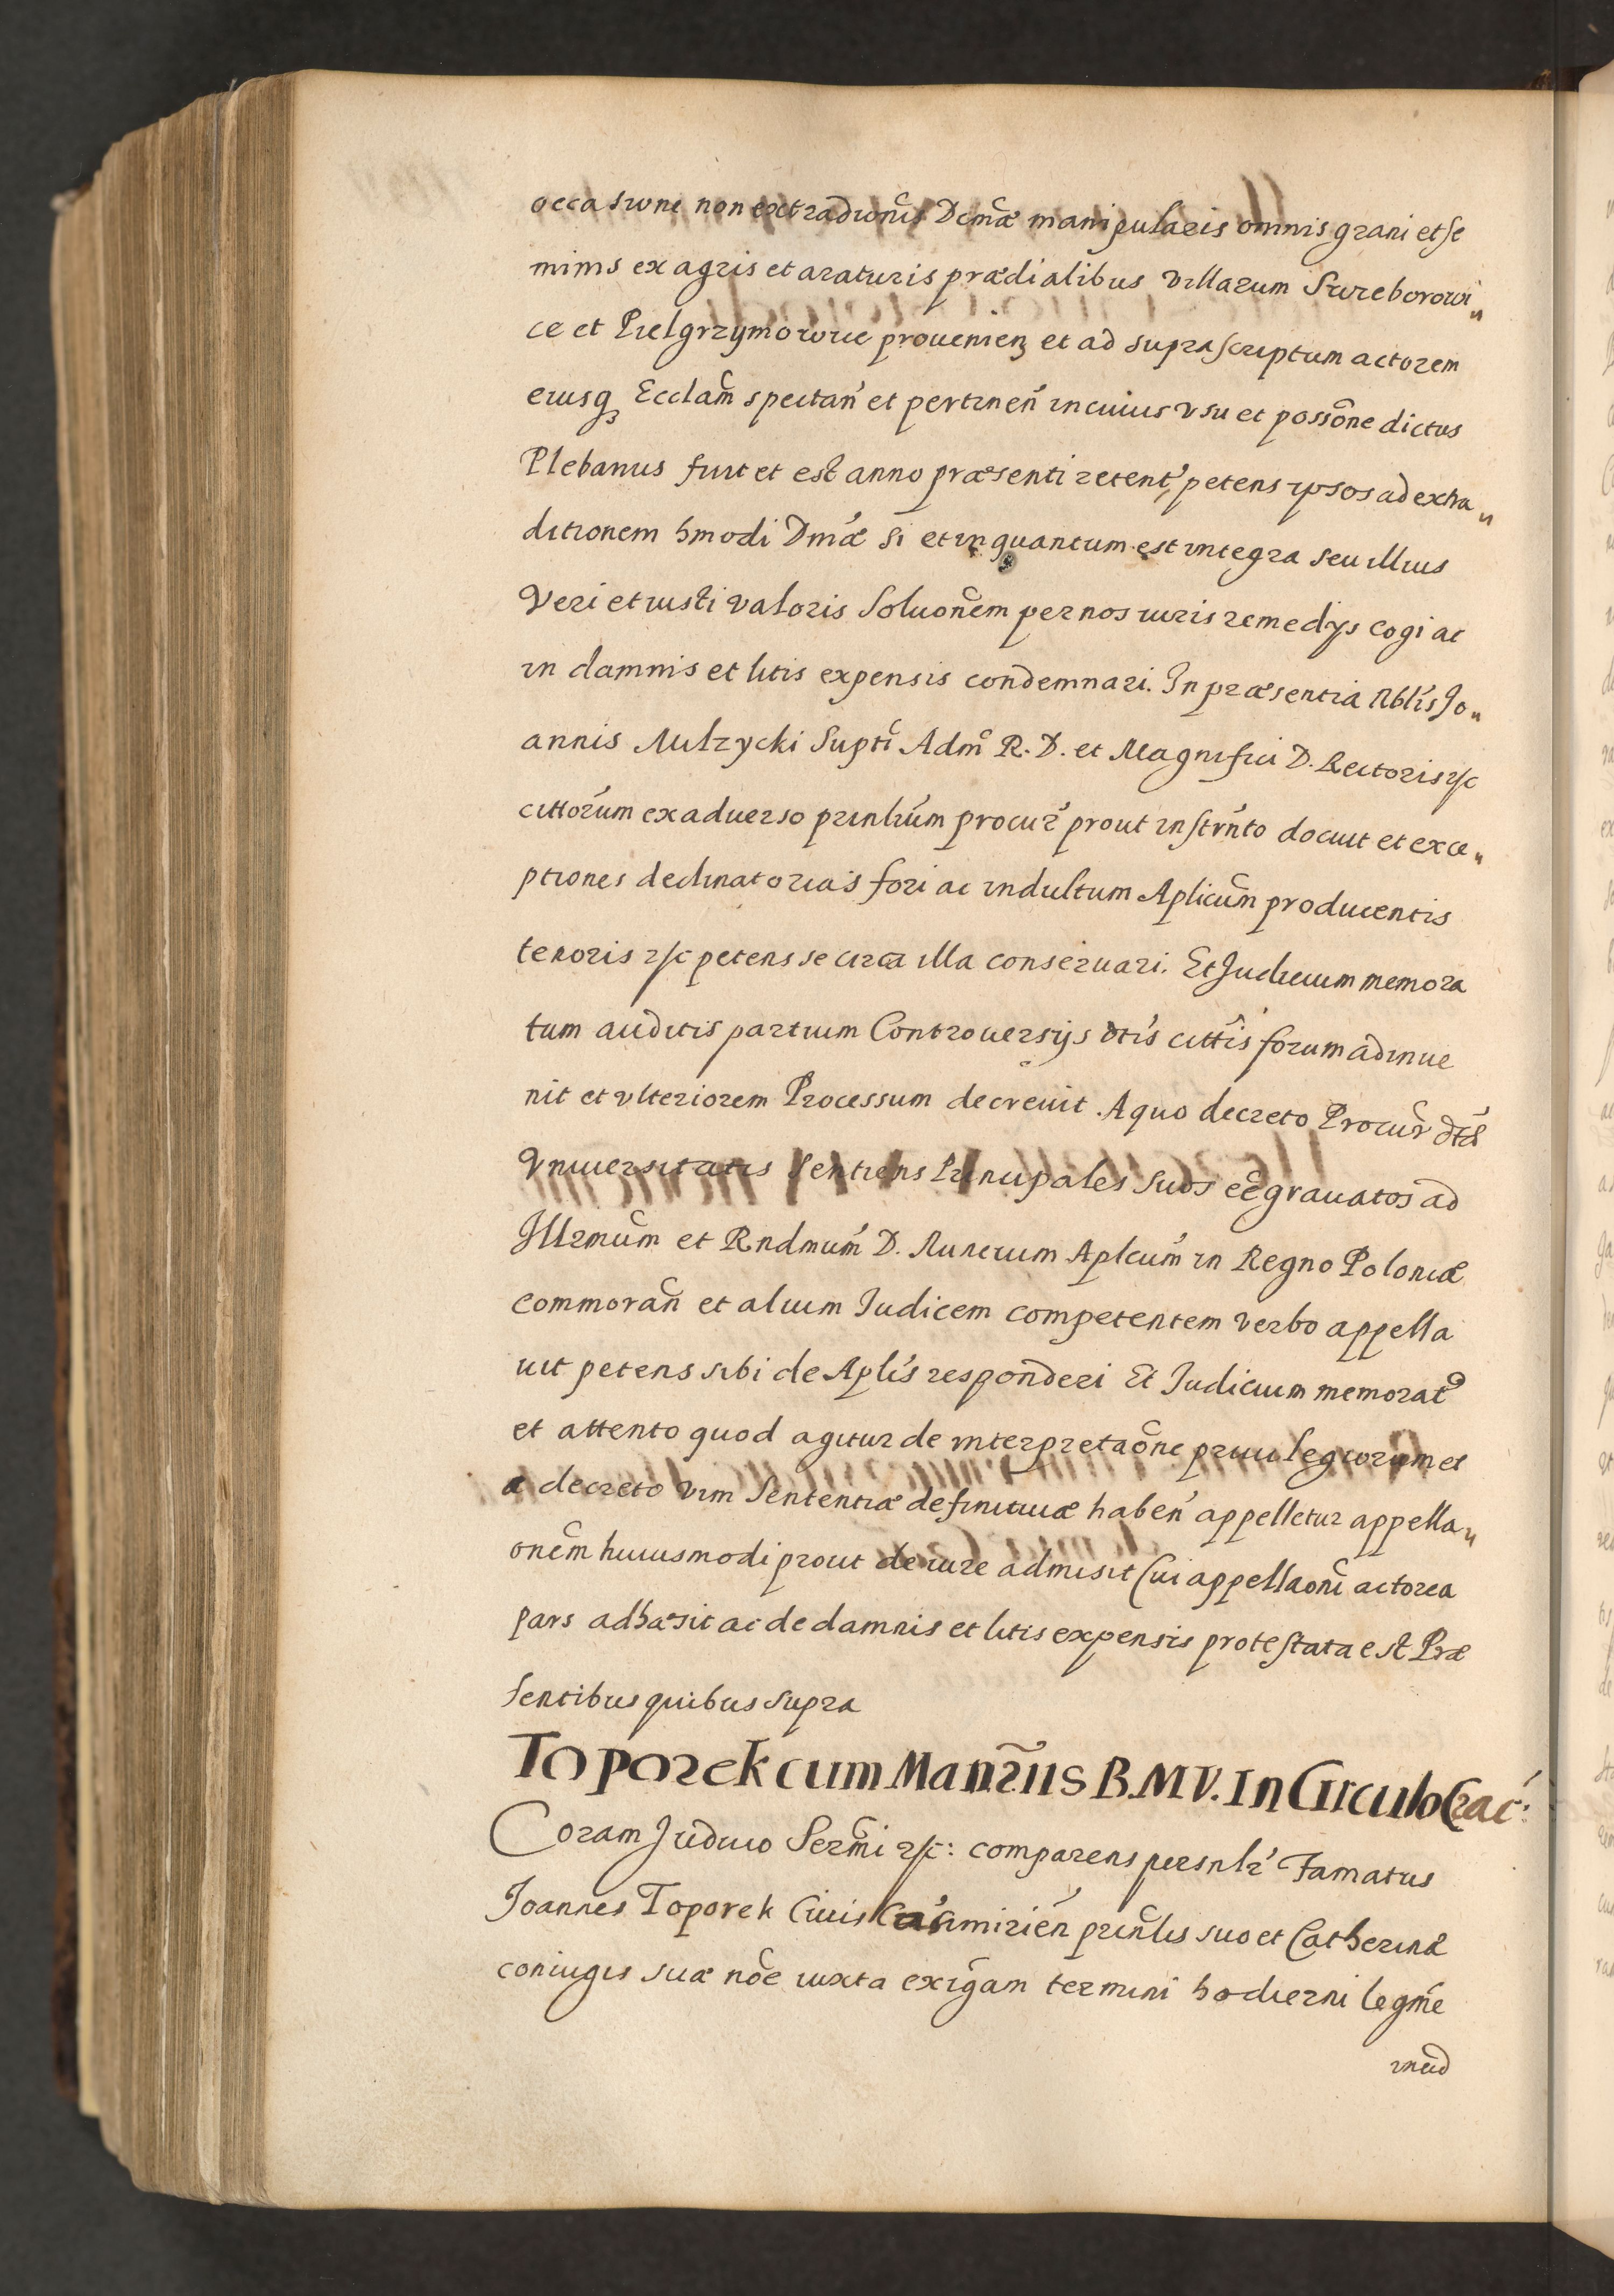 occasione non extradionis Dcmæ manipularis omnis grani et se
minis ex agris et araturis prædialibus villarum Swieborowi„
ce et Pielgrzymowice prouenien̄ et ad suprascriptum actorem
eiusq̃ Ecclam̃ spectan̄ et pertinen̄ in cuius vsu et possõne dictus
Plebanus fuit et est anno præsenti retent̃, petens ipsos ad extra„
ditionem hmodi Dmæ si et in quantum est integra seu illius
Veri et iusti valoris Soluonẽm per nos iuris remedijs cogi ac
in damnis et litis expensis condemnari. In præsentia Nblis Jo„
annis Milzycki Supti Adm̃ R. D. et Magnifici D. Rectoris &c
cittorum ex aduerso prinlium procur̃ prout instrnto docuit et exce„
ptiones declinatorias fori ac indultum Aplicum̃ producentis
tenoris &c petens se circa illa conseruari. Et Judicium memora
tum auditis partium Controuersijs dtis cittis forum adinue
nit et vlteriorem Processum decreuit. A quo decreto Procur̃ dtæ
Vniuersitatis Sentiens Principales suos eẽ grauatos ad
Jllrmum̃ et Rndmum̃ D. Nuncium Aplcum̃ in Regno Poloniæ
commoran̄ et alium Iudicem competentem verbo appella
uit petens sibi de Aplis responderi Et Iudicium memorat
et attento quod agitur de interpretaõne priuilegiorum et
a decreto vim Sententiæ definitiuæ haben̄ appelletur appella„
onẽm huiusmodi prout de iure admisit Cui appellaoni actorea
pars adhæsit ac de damnis et litis expensis protestata est Præ
sentibus quibus supra
Toporek cum Manrĩis B.M.V. In Circulo Crac̃:
Coram Judicio Sermi &c: comparens persnlr̃ Famatus
Joannes Toporek Ciuis Casimirien̄ prinlis suo et Catherinæ
coniugis suæ nõe iuxta exigam̃ termini hodierni legmẽ